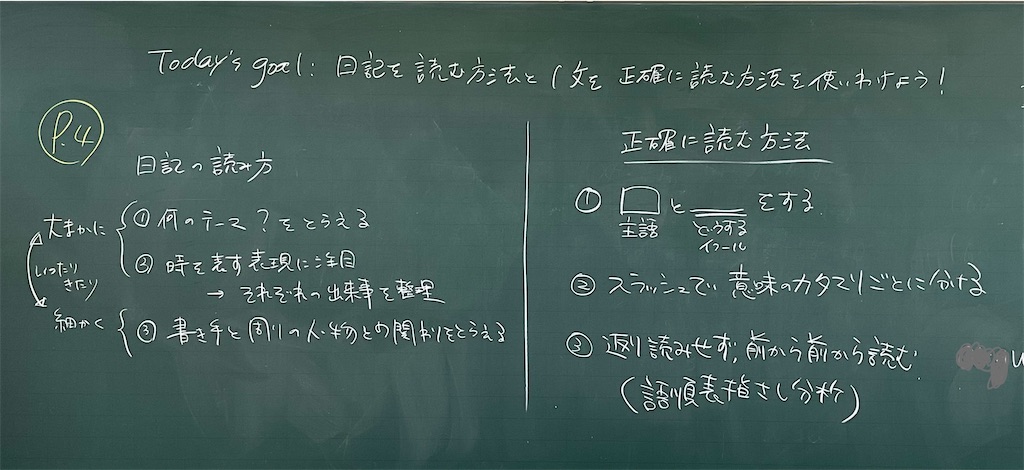 Today's goal: 日記を読む方法と1文を正確に読む方法を使いわけよう!
P.4
日記の読み方
大まかに
① 何のテーマ?をとらえる
② 時を表す表現に注目
→ それぞれの出来事を整理
いったり
きたり
細かく
③ 書き手と周りの人・物との関わりをとらえる
正確に読む方法
① と をする
主語 どうする
イコール
② スラッシュで意味のカタマリごとに分ける
③ 返り読みせず、前から前から読む
(語順表指さし分析)